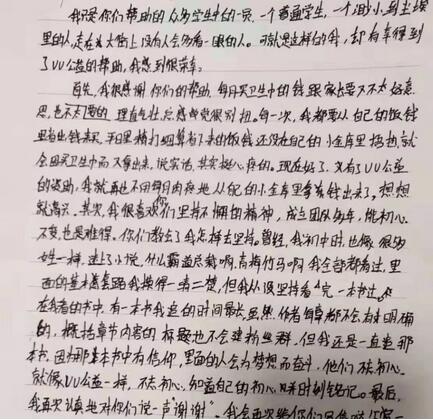 我只是你们帮助的众多学生中的一员,一个普通学生,一个渺小到尘埃
里的人,走在大街上没有人会多看一眼的人。可就是这样的我,却有幸得到
了VV公益的帮助,我感到很荣幸。
首先,我很感谢你们的帮助,每月买卫生巾的钱跟家长要不太好意
思,也不太理直气壮,总感觉很别扭。每一次,我都要从自己的饭钱
里省出钱来买,平日里精打细算省下来的饭钱还没在自己的小金库里捂热就
会因买卫生巾而又拿出来,说实话,其实挺心疼的。现在好了,又有了VV公益
的资助,我就再也不用每月肉疼地从自己的小金库里拿钱出来了,想想
就高兴。其次,我很喜欢你们坚持不懈的精神,成立团队多年,能初心
不变也是难得。你们教会了我怎样去坚持。曾经,我初中时,也像很多
女生一样,迷上了小说,什么霸道总裁啊,青梅竹马啊我全都看过,里
面的基本套路我摸得一清二楚,但我从没坚持看完一本书过。
在我看的书中,有一本书我追的时间最长,虽然作者每章都不会标明确
的,概括章节内容的标题也不会建粉丝群,但我还是一直追那
本书。因为那本书中有信仰,里面的人会为梦想而奋斗,他们不忘初心,
就像VV公益一样,不忘初心,知道自己的初心,时刻铭记。最后,
我再次认真地对你们说一声“谢谢”。我会再次给你们